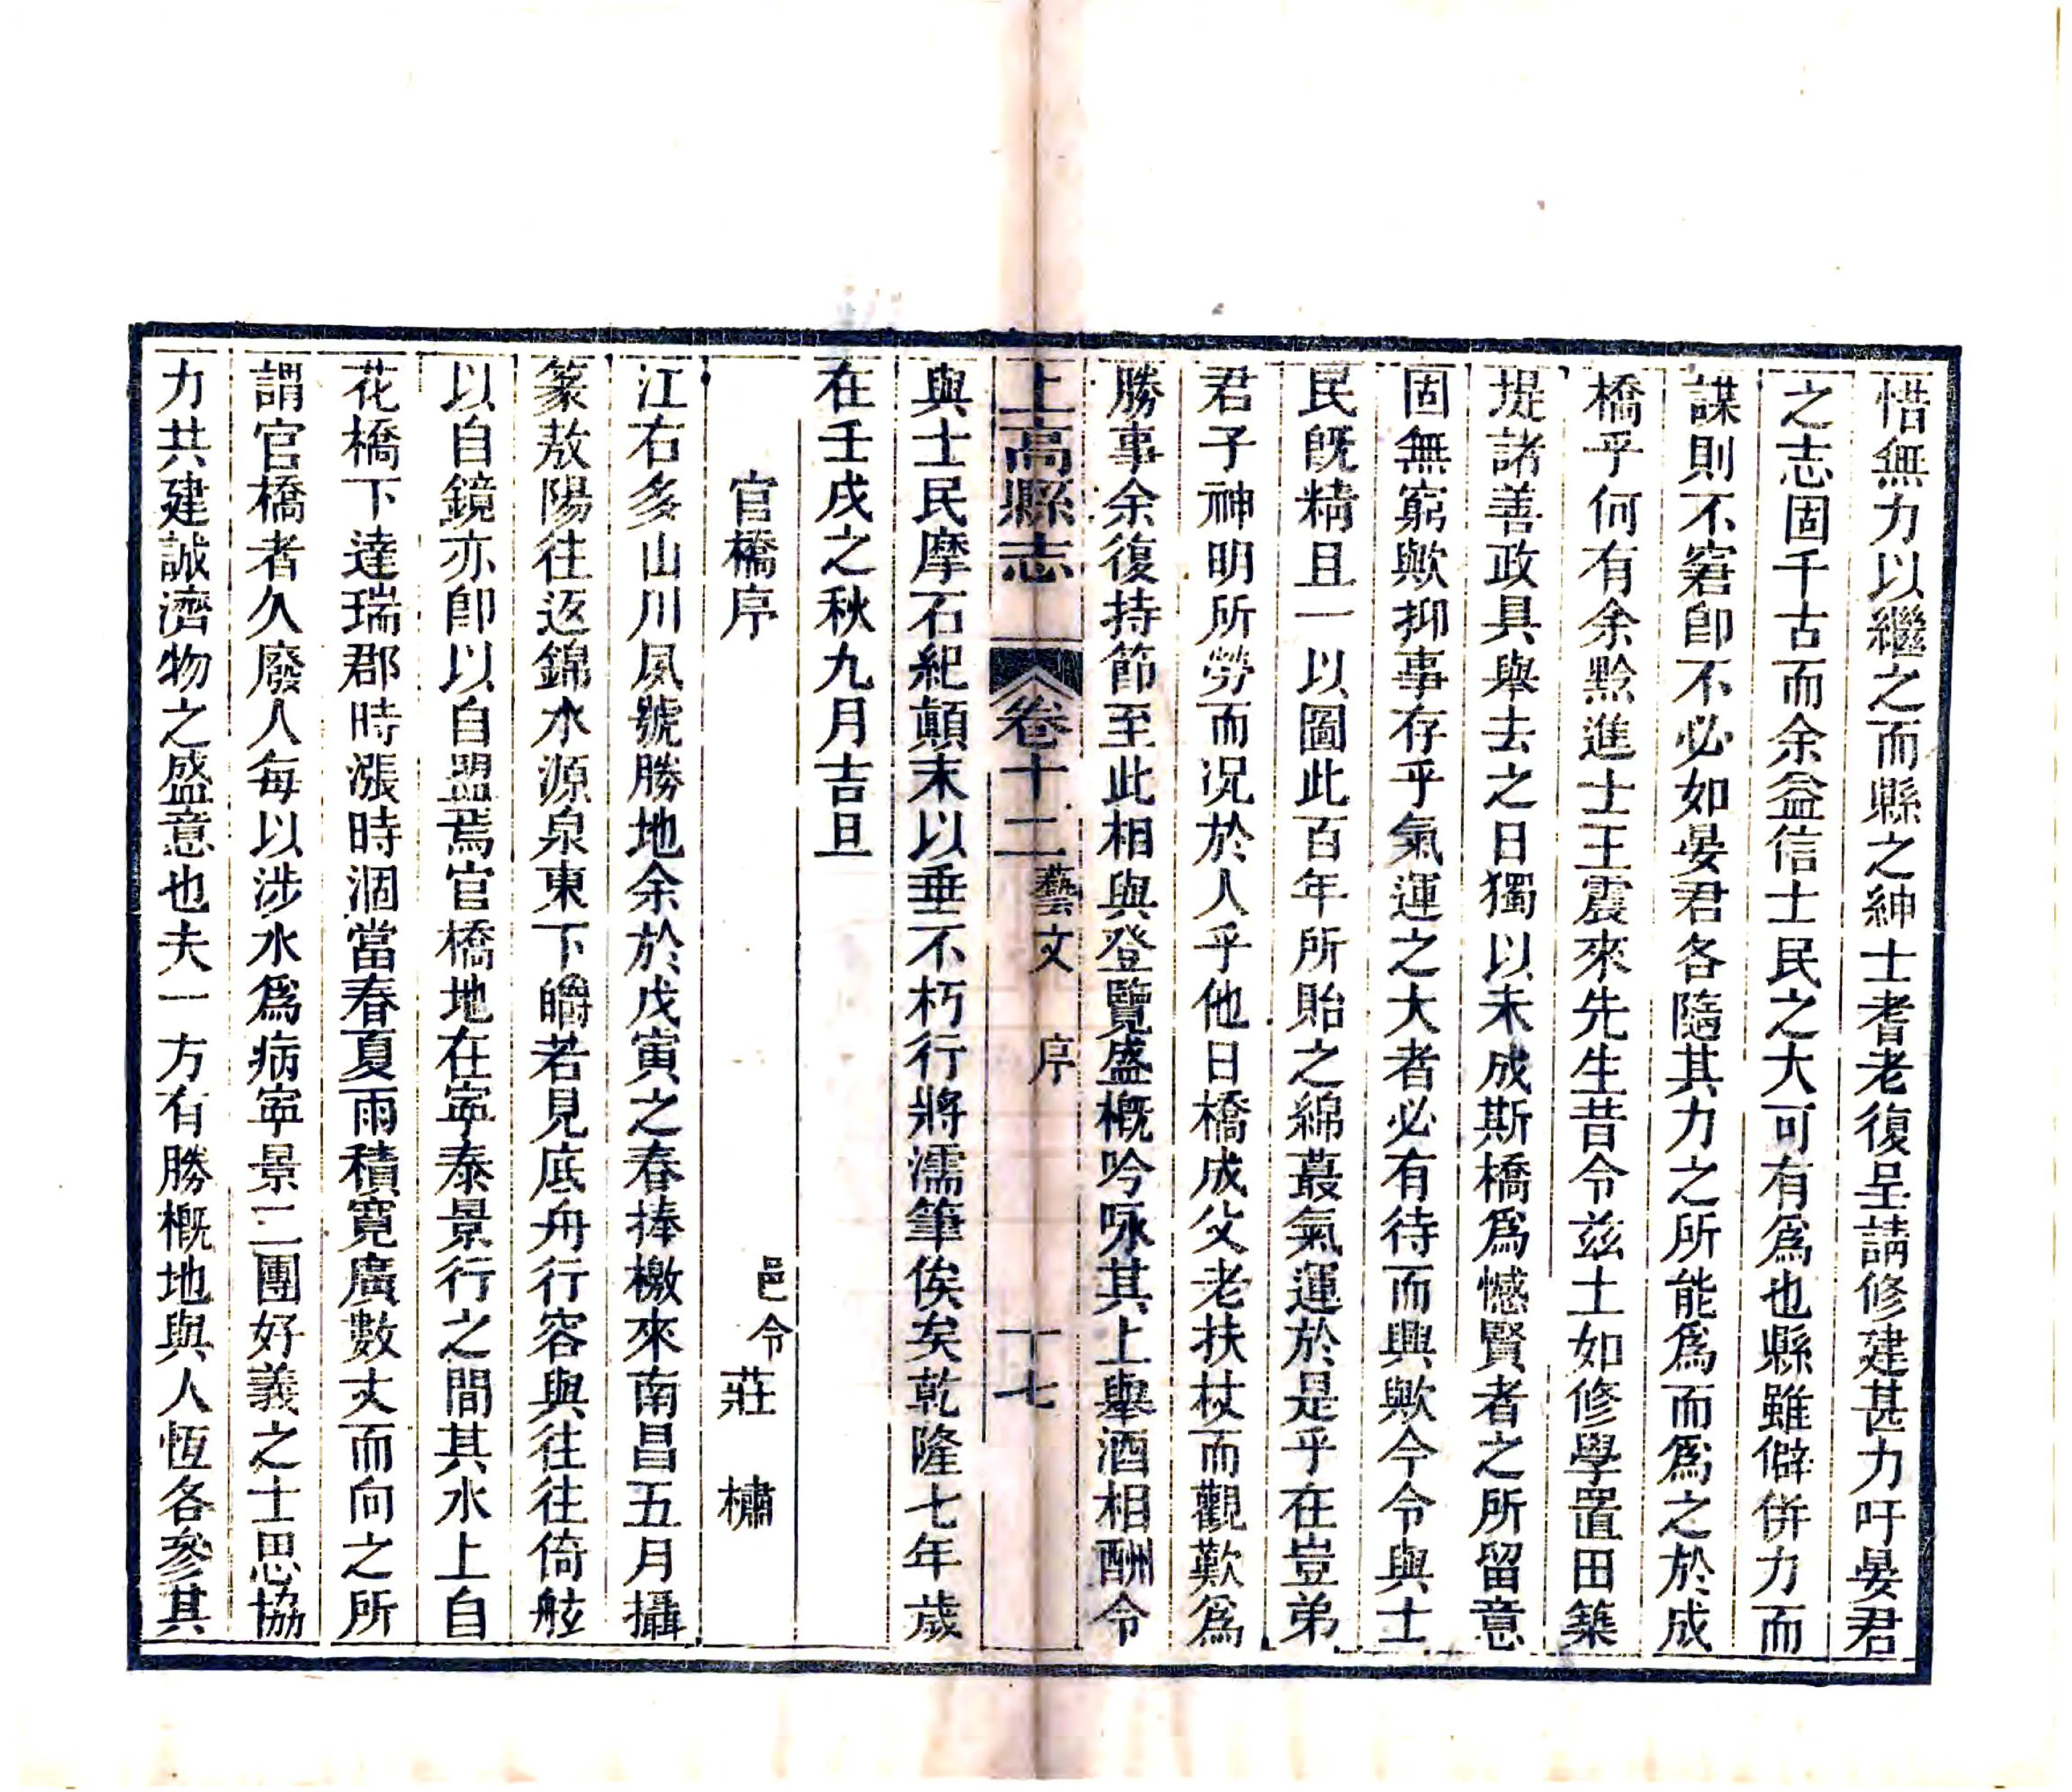 惜無力以繼之而縣之紳士耆老復呈請修建甚力吁晏君
之志固千古而余益信士民之大可有為也縣雖僻併力而
謀則不窘卽不必如晏君各隨其力之所能為而為之於成
橋乎何有余黔進士王震來先生昔令兹土如修學置田築
堤諸善政具舉去之日獨以未成斯橋為憾賢者之所留意
固無窮歟抑事存乎氣運之大者必有待而興歟今令與士
民旣精且一以圖此百年所貽之綿蕞氣運於是乎在豈弟
君子神明所勞而况於人乎他日橋成父老扶杖而觀歎為
勝事余復持節至此相與登覽盛概吟咏其上舉酒相酬令
與士民摩石紀顛末以垂不朽行將濡筆俟矣乾隆七年歲
在壬戌之秋九月吉旦
官橋序 邑令 莊 橚
江右多山川夙號勝地余於戊寅之春捧檄來南昌五月攝
篆敖陽往返錦水源泉東下皭若見底舟行容與往往倚舷
以自鏡亦卽以自盟焉官橋地在寧泰景行之間其水上自
花橋下達瑞郡時漲時涸當春夏雨積寬廣數丈而向之所
謂官橋者久廢人每以涉水為病寧景二團好義之士思協
力共建誠濟物之盛意也夫一方有勝概地與人恆各參其
上高縣志 卷十二 藝文 序 十七